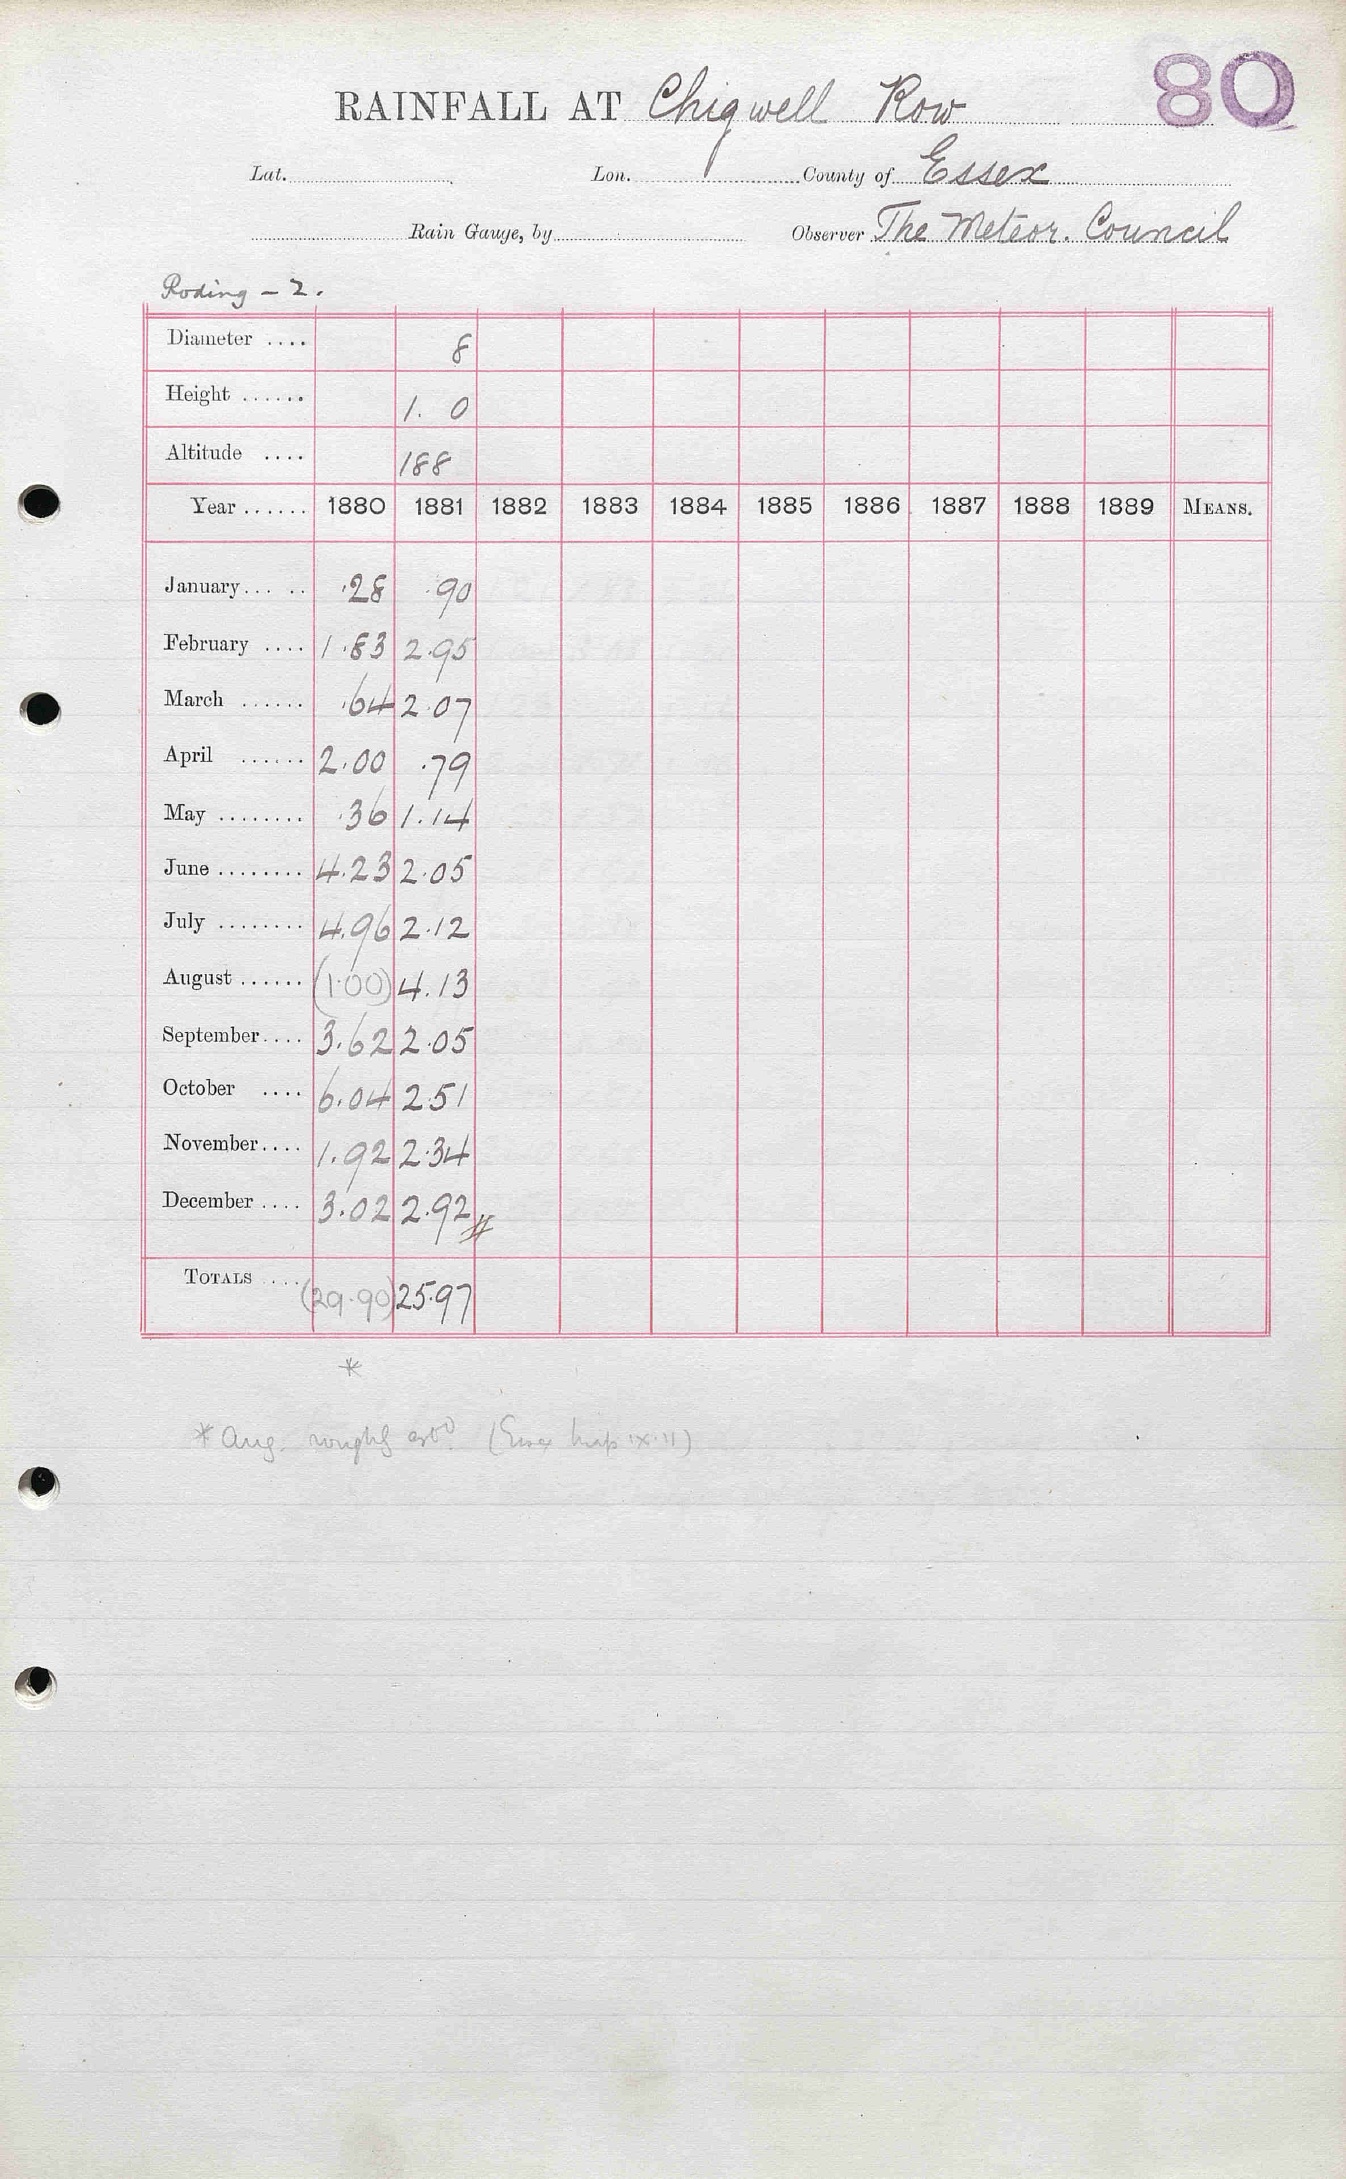 80
RAINFALL AT Chigwell Row
Lat. Lon. County of Essex
Rain Gauge, by Observer The Meteor. Council
Roding - 2.
Diameter .... 8
Height ...... 1. 0
Altitude .... 188
Year ...... 1880 1881 1882 1883 1884 1885 1886 1887 1888 1889 MEANS.
January ... .. .28 .90
February .... 1.83 2.95
March ...... .64 2.07
April ...... 2.00 .79
May ........ .36 1.14
June ........ 4.23 2.05
July ........ 4.96 2.12
August ...... (1.00) 4.13
September .... 3.62 2.05
October .... 6.04 2.51
November .... 1.92 2.34
December .... 3.02 2.92 #
TOTALS .... (29.90) 25.97
*
* Aug. roughly estd. (Essex map IX.11)